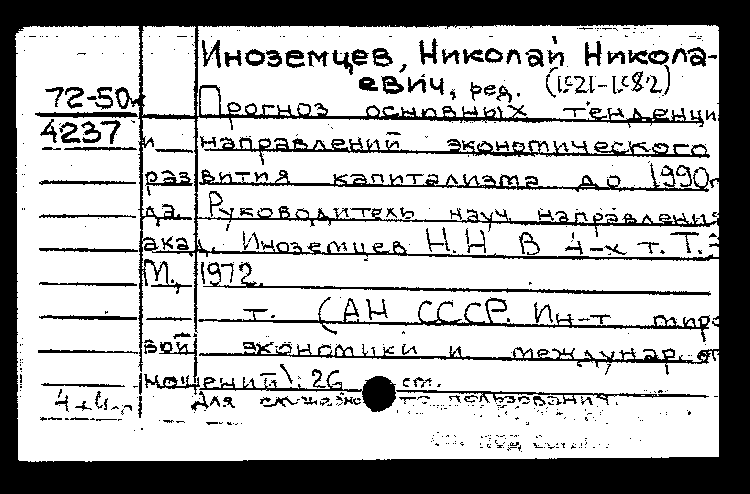 Иноземцев, Николай Никола-
евич, ред. (1921-1982)
72-50
4237
Прогноз основных тенденци
и направлений экономического
развития капитализма до 1990г
да. Руководитель науч направления
акад. Иноземцев Н.Н. В 4-х т. Т.
М., 1972.
т. (АН СССР. Ин-т миро
вой экономики и междунар. от
ношений). 26 см.
Для служебно го пользования.